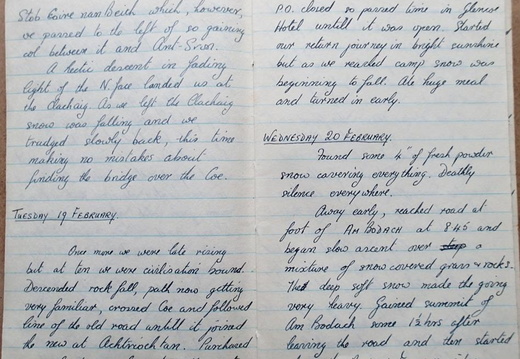 Stob Coire nan Beith which, however,
we passed to the left of so gaining
col between it and Ant-Sron.
A hectic descent in fading
light of the N. face landed us at
the Clachaig. As we left the Clachaig
snow was falling and we
trudged slowly back, this time
making no mistakes about
finding the bridge over the Coe.
TUESDAY 19 FEBRUARY.
Once more we were late rising
but at ten we were civilisation bound.
Descended rock fall, path now getting
very familiar, crossed Coe and followed
line of the old road untill it joined
the new at Achtriochtan. Purchased
P.O. closed so passed time in Glencoe
Hotel untill it was open. Started
our return journey in bright sunshine
but as we reached camp snow was
beginning to fall. Ate huge meal
and turned in early.
WEDNESDAY 20 FEBRUARY.
Found some 4" of fresh powder
snow covering everything. Deathly
silence everywhere.
Away early, reached road at
foot of AM BODACH at 8 45 and
began slow ascent over a
mixture of snow covered grass & rocks.
The deep soft snow made the going
very heavy. Gained summit of
Am Bodach some 1½ hrs after
leaving the road and then started